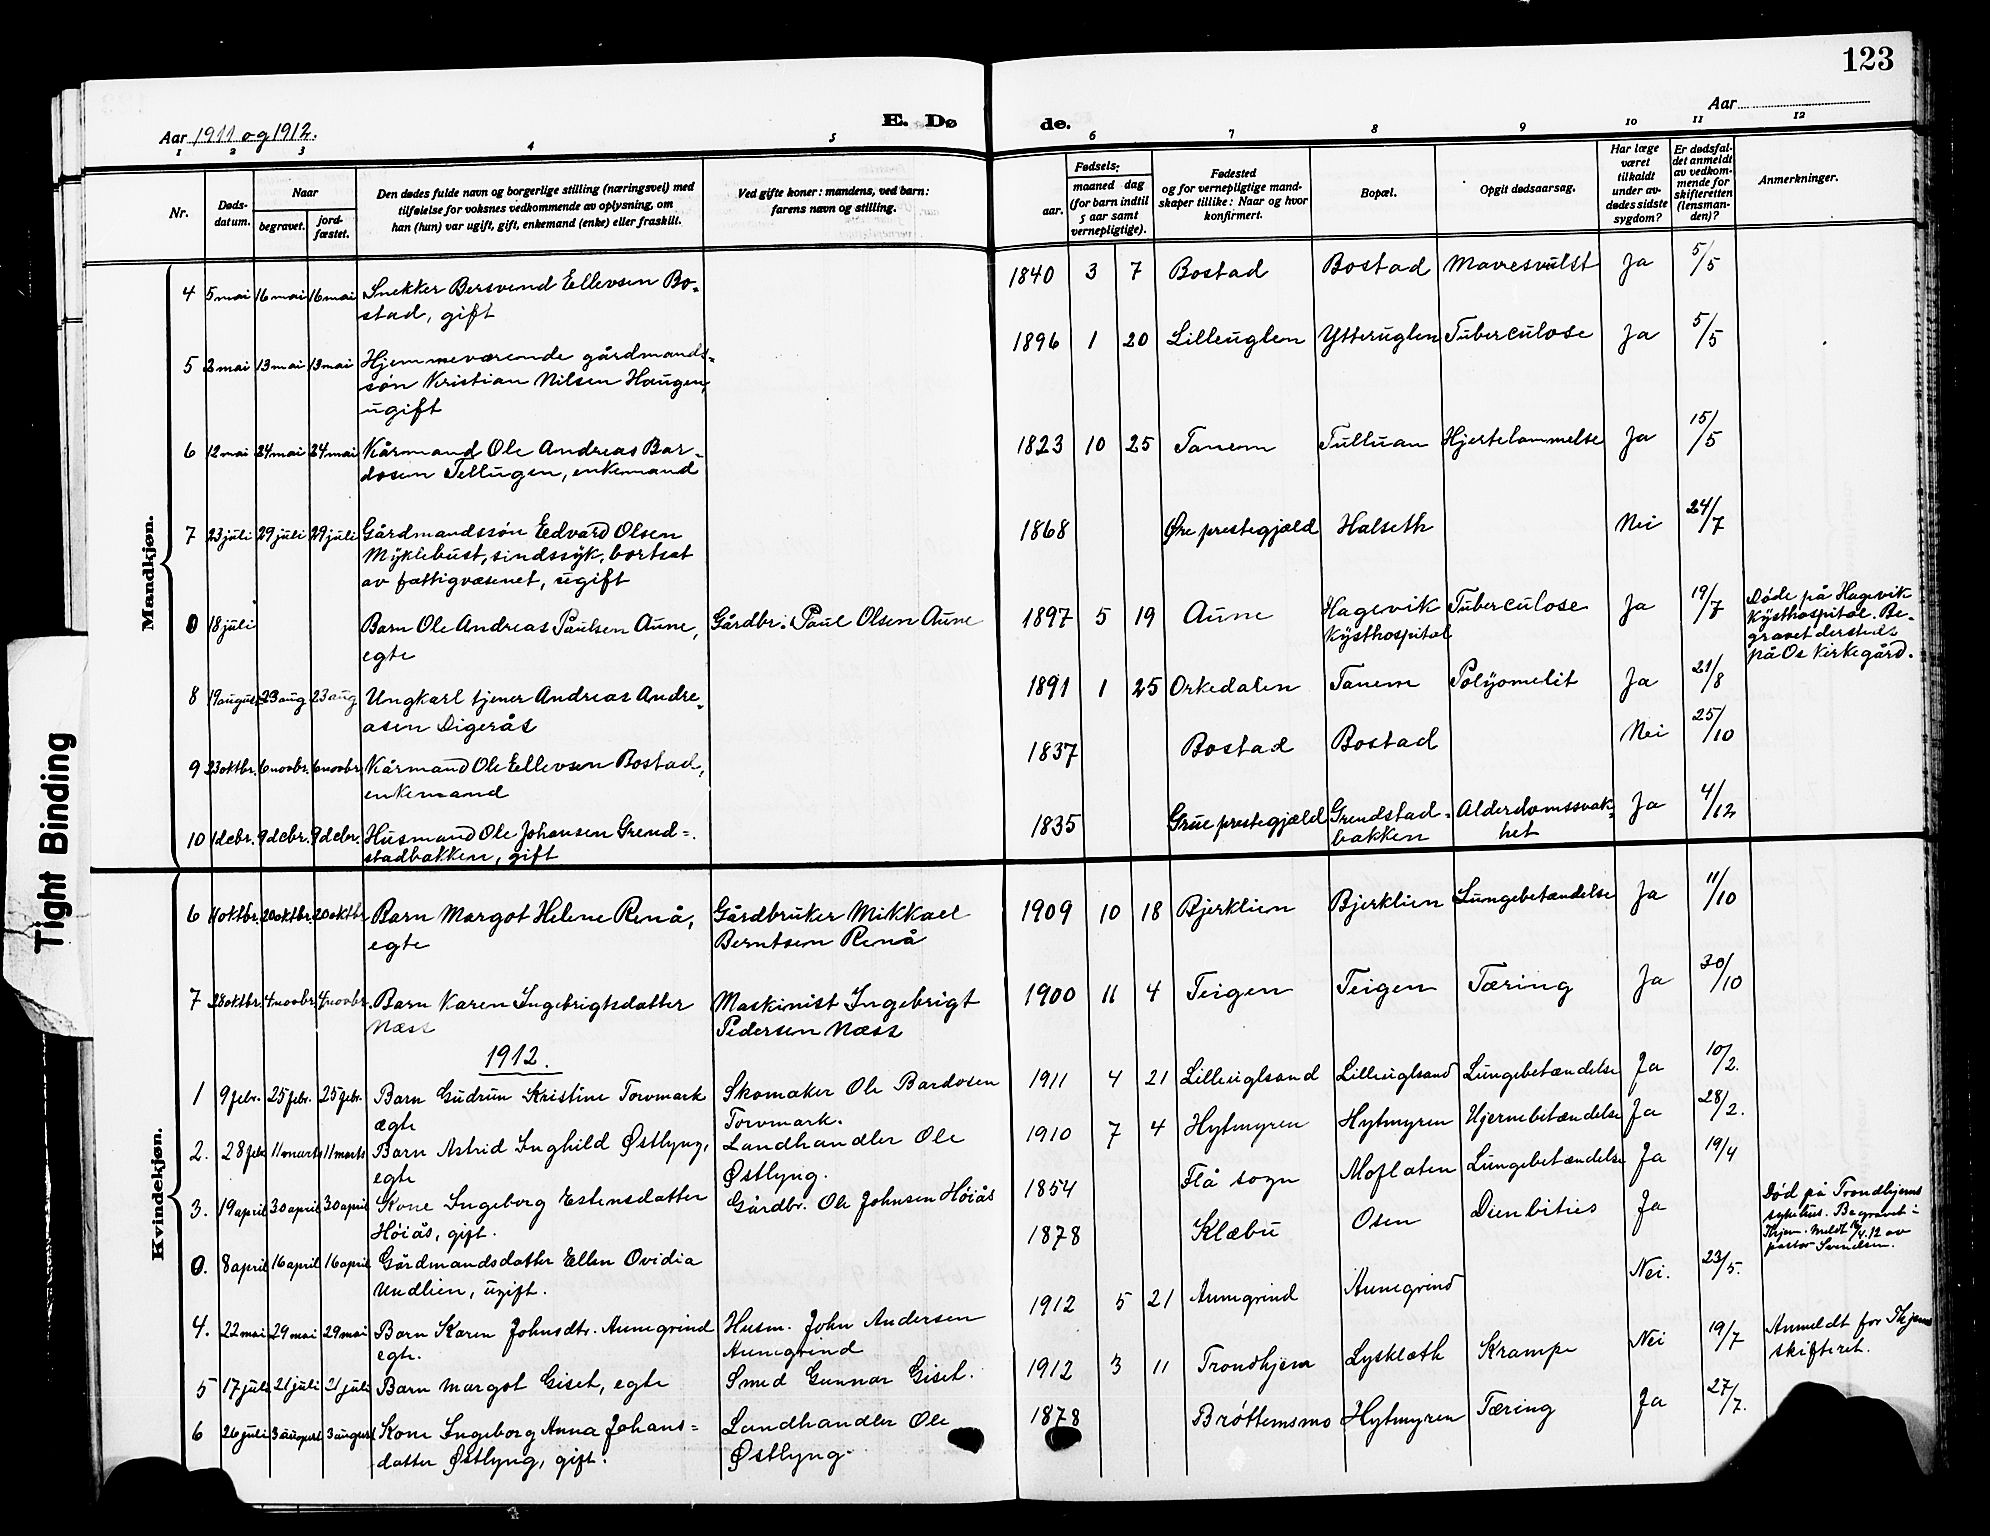 123
Aar 1911 og 1912.
E. Dø de.
Aar
1 2 3 4 5 6 7 8 9 10 11 12
Nr.
Døds-
datum.
Naar
begravet.
jord-
fæstet.
Den dødes fulde navn og borgerlige stilling (næringsvei) med
tilføielse for voksnes vedkommende av oplysning, om
han (hun) var ugift, gift, enkemand (enke) eller fraskilt.
Ved gifte koner: mandens, ved barn:
farens navn og stilling.
Fødsels-
aar.
maaned dag
(for barn indtil
5 aar samt
vernepligtige).
Fødested
og for vernepligtige mand-
skaper tillike: Naar og hvor
konfirmert.
Bopæl.
Opgit dødsaarsag.
Har læge
været
tilkaldt
under av-
dødes sidste
sygdom?
Er dødsfal-
det anmeldt
av vedkom-
mende for
skifteretten
(lensman-
den)?
Anmerkninger.
Mandkjøn.
4 5 mai 16 mai 16 mai Snekker Bersvend Ellevsen Bo- 1840 3 7 Bostad Bostad Mavesvulst Ja 5/5
stad, gift
5 2 mai 13 mai 13 mai Hjemmeværende gårdmands- 1896 1 20 Lilleuglen Ytteruglen Tuberculose Ja 5/5
søn Kristian Nilsen Haugen,
ugift
6 12 mai 24 mai 24 mai Kårmand Ole Andreas Bar- 1823 10 25 Tanem Tulluan Hjertelammelse Ja 15/5
dosen Tellugen, enkemand
7 23 juli 29 juli 29 juli Gårdmandssøn Edvard Olsen 1868 Øre prestegjæld Halseth Nei 24/7
Myklebust, sindssyk, bortsat
av fattigvæsenet, ugift
0 18 juli Barn Ole Andreas Paulsen Aune, Gårdbr: Paul Olsen Aune 1897 5 19 Aune Hagevik Tuberculose Ja 19/7 Døde på Hagevik
egte Kysthospital Kysthospital. Be-
gravet dersteds
på Os Kirkegård.
8 19 august 23 aug 23 aug Ungkarl tjener Andreas Andre- 1891 1 25 Orkedalen Tanem Polyomelit Ja 21/8
asen Digerås
9 23 oktbr. 6 novbr. 6 novbr. Kårmand Ole Ellevsen Bostad, 1837 Bostad Bostad Nei 25/10
enkemand
10 1 debr. 9 debr. 9 debr. Husmand Ole Johansen Grend- 1835 Grue prestegjæld Grendstad- Alderdomssvak- Ja 4/12
stadbakken, gift bakken het
Kvindekjøn.
6 11 oktbr. 20 oktbr. 20 oktbr Barn Margot Helene Renå, Gårdbruker Mikkael 1909 10 18 Bjerklien Bjerklien Lungebetændelse Ja 11/10
egte Berntsen Renå
7 28 oktbr. 4 novbr. 4 novbr. Barn Karen Ingebrigtsdatter Maskinist Ingebrigt 1900 11 4 Teigen Teigen Tæring Ja 30/10
Næss Pedersen Næss
1912.
1 9 febr. 25 febr. 25 febr. Barn Gudrun Kristine Torvmark Skomaker Ole Bardosen 1911 4 21 Lilleuglsand Lilleuglsand Lungebetændelse Ja 10/2.
ægte Torvmark.
2. 28 feb 11 marts 11 marts Barn Astrid Inghild Østlyng, Landhandler Ole 1910 7 4 Hytmyren Hytmyren Hjernebetændelse Ja 28/2.
egte Østlyng.
3. 19 april 30 april 30 april Kone Ingeborg Estensdatter Gårdbr. Ole Johnsen Høiås 1854 Flå sogn Moflaten Lungebetændelse Ja 19/4
Høiås, gift.
0. 8 april 16 april 16 april Gårdmandsdatter Ellen Ovidia 1878 Klæbu Osen Ja Død på Trondhjems
Undlien, ugift. sykehus. Begravet i
Thjem. Meldt 16/4.12 av
pastor Svendsen.
4. 22 mai 29 mai 29 mai Barn Karen Johnsdtr. Aunegrind Husm. John Andersen 1912 5 21 Aunegrind Aunegrind Nei. 23/5.
egte. Aunegrind
5 17 juli 21 juli 21 juli Barn Margot Giset, egte Smed Gunnar Giset. 1912 3 11 Trondhjem Lysklæth Krampe Nei 19/7 Anmeldt for Thjems
skifteret.
6 26 juli 3 august 3 august Kone Ingeborg Anna Johans- Landhandler Ole 1878 Brøttemsmo Hytmyren Tæring Ja 27/7.
datter Østlyng, gift. Østlyng.
Tight Binding